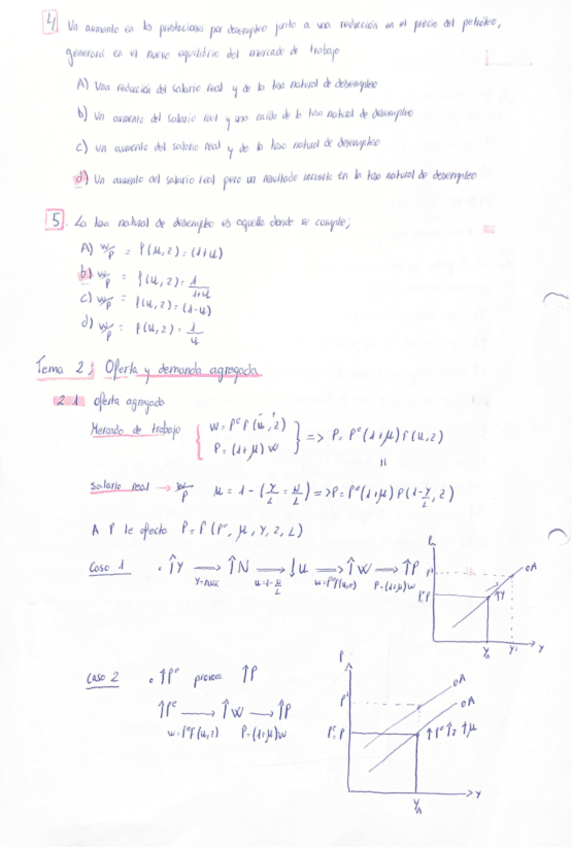 4 Un aumento en las prestaciones por desempleo junto a una reducción en el precio del petróleo,
generará en el nuevo equilibrio del mercado de trabajo
A) Una reducción del salario real y de la tasa natural de desempleo
b) Un aumento del salario real y una caída de la tasa natural de desempleo
c) Un aumento del salario real y de la tasa natural de desempleo
d) Un aumento del salario real pero un resultado incierto en la tasa natural de desempleo
5. La tasa natural de desempleo es aquella donde se cumple;
A) W/P = f(u,z) = (1+u)
b) W/P = f(u,z) = 1/(1+u)
c) W/P = f(u,z) = (1-u)
d) W/P = f(u,z) = 1/u
Tema 2; Oferta y demanda agregada
2.1 oferta agregada
Mercado de trabajo { W = Pᵉ f(u⁻, z⁺) P = (1+μ) W } => P = Pᵉ(1+μ) f(u,z)
Salario real → W/P u = 1 - (Y/L = N/L) => P = Pᵉ(1+μ) f(1-Y/L, z)
A P le afecta P = f(Pᵉ, μ, Y, z, L)
Caso 1 . ↑Y → ↑N → ↓u → ↑W → ↑P
u=1-N/L W=Pᵉf(u,z) P=(1+μ)W
P P' Pᵉ=P OA ↑Y Yn Y' Y
Caso 2 . ↑Pᵉ provoca ↑P
↑Pᵉ → ↑W → ↑P
W=Pᵉf(u,z) P=(1+μ)W
P P' Pᵉ=P OA OA ↑Pᵉ ↑z ↑μ Y